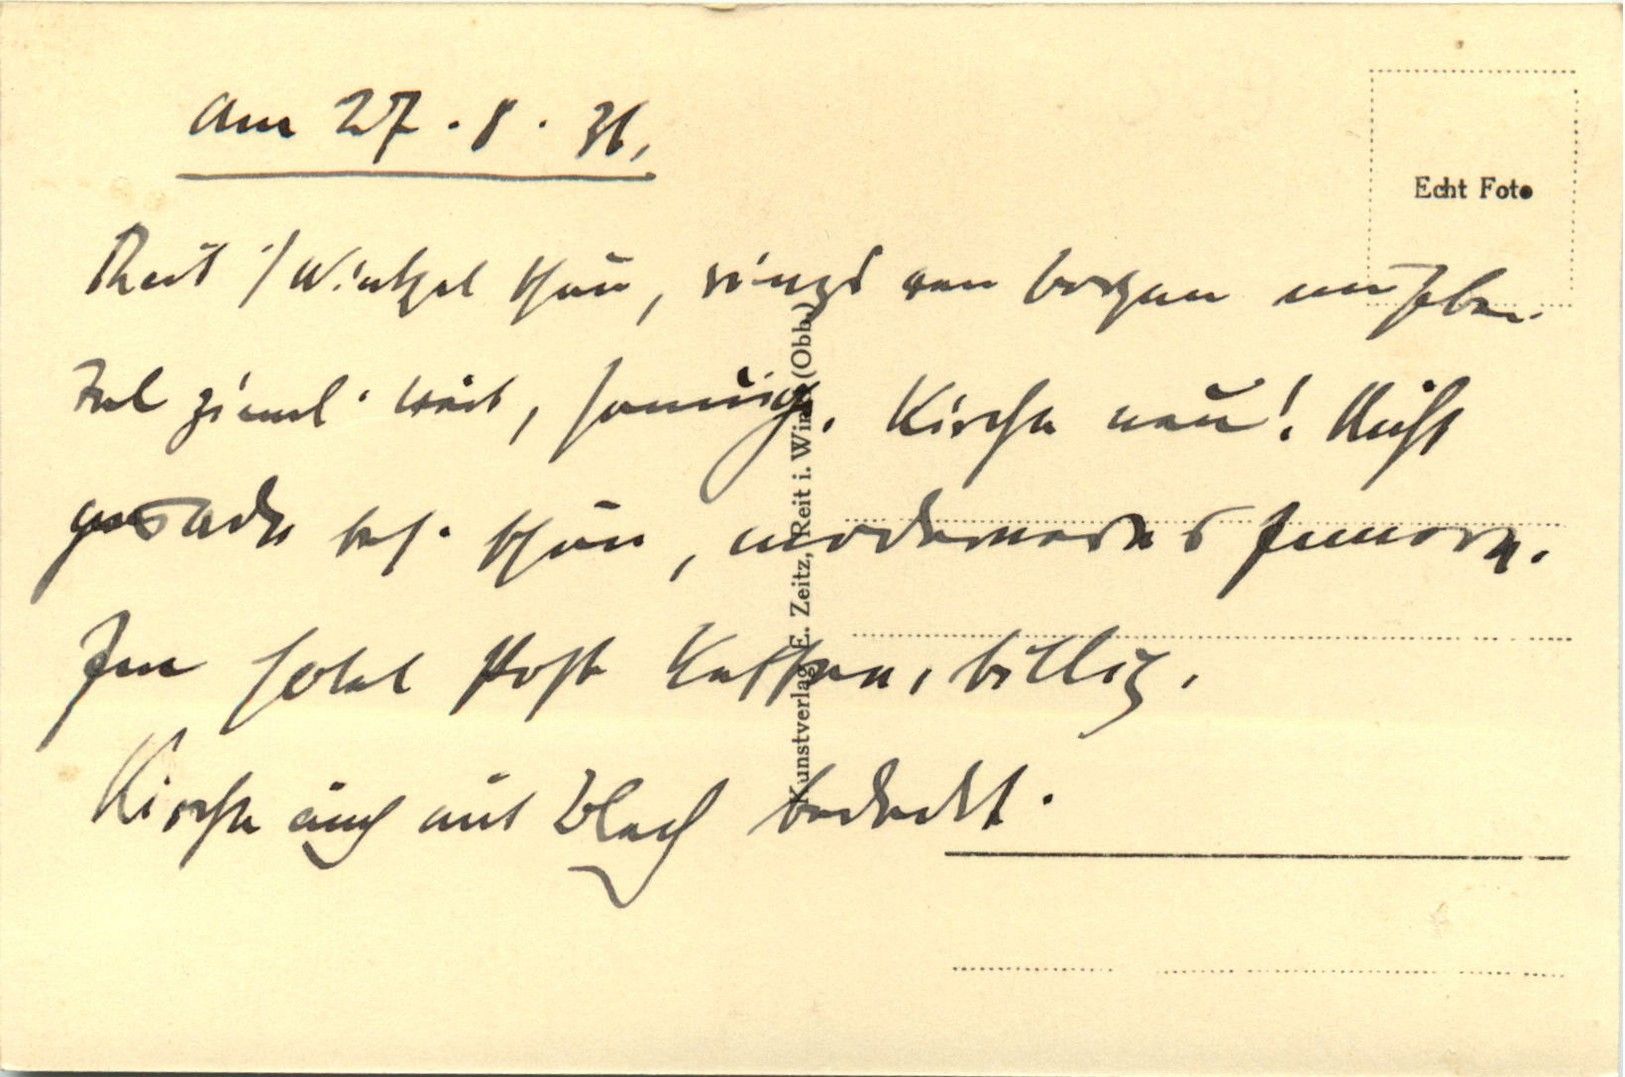 am 27.8.36.
Echt Foto
Reit i/Winkel schön, rings von bergen umgeben.
Tal zieml. weit, sonnig. Kirche neu! Nicht
gerade bes. schön, moderneres Innere.
Im Hotel Post Kaffee, billig.
Kirche auch mit Blech bedeckt.
Kunstverlag E. Zeitz, Reit i. Winkl (Obb.)